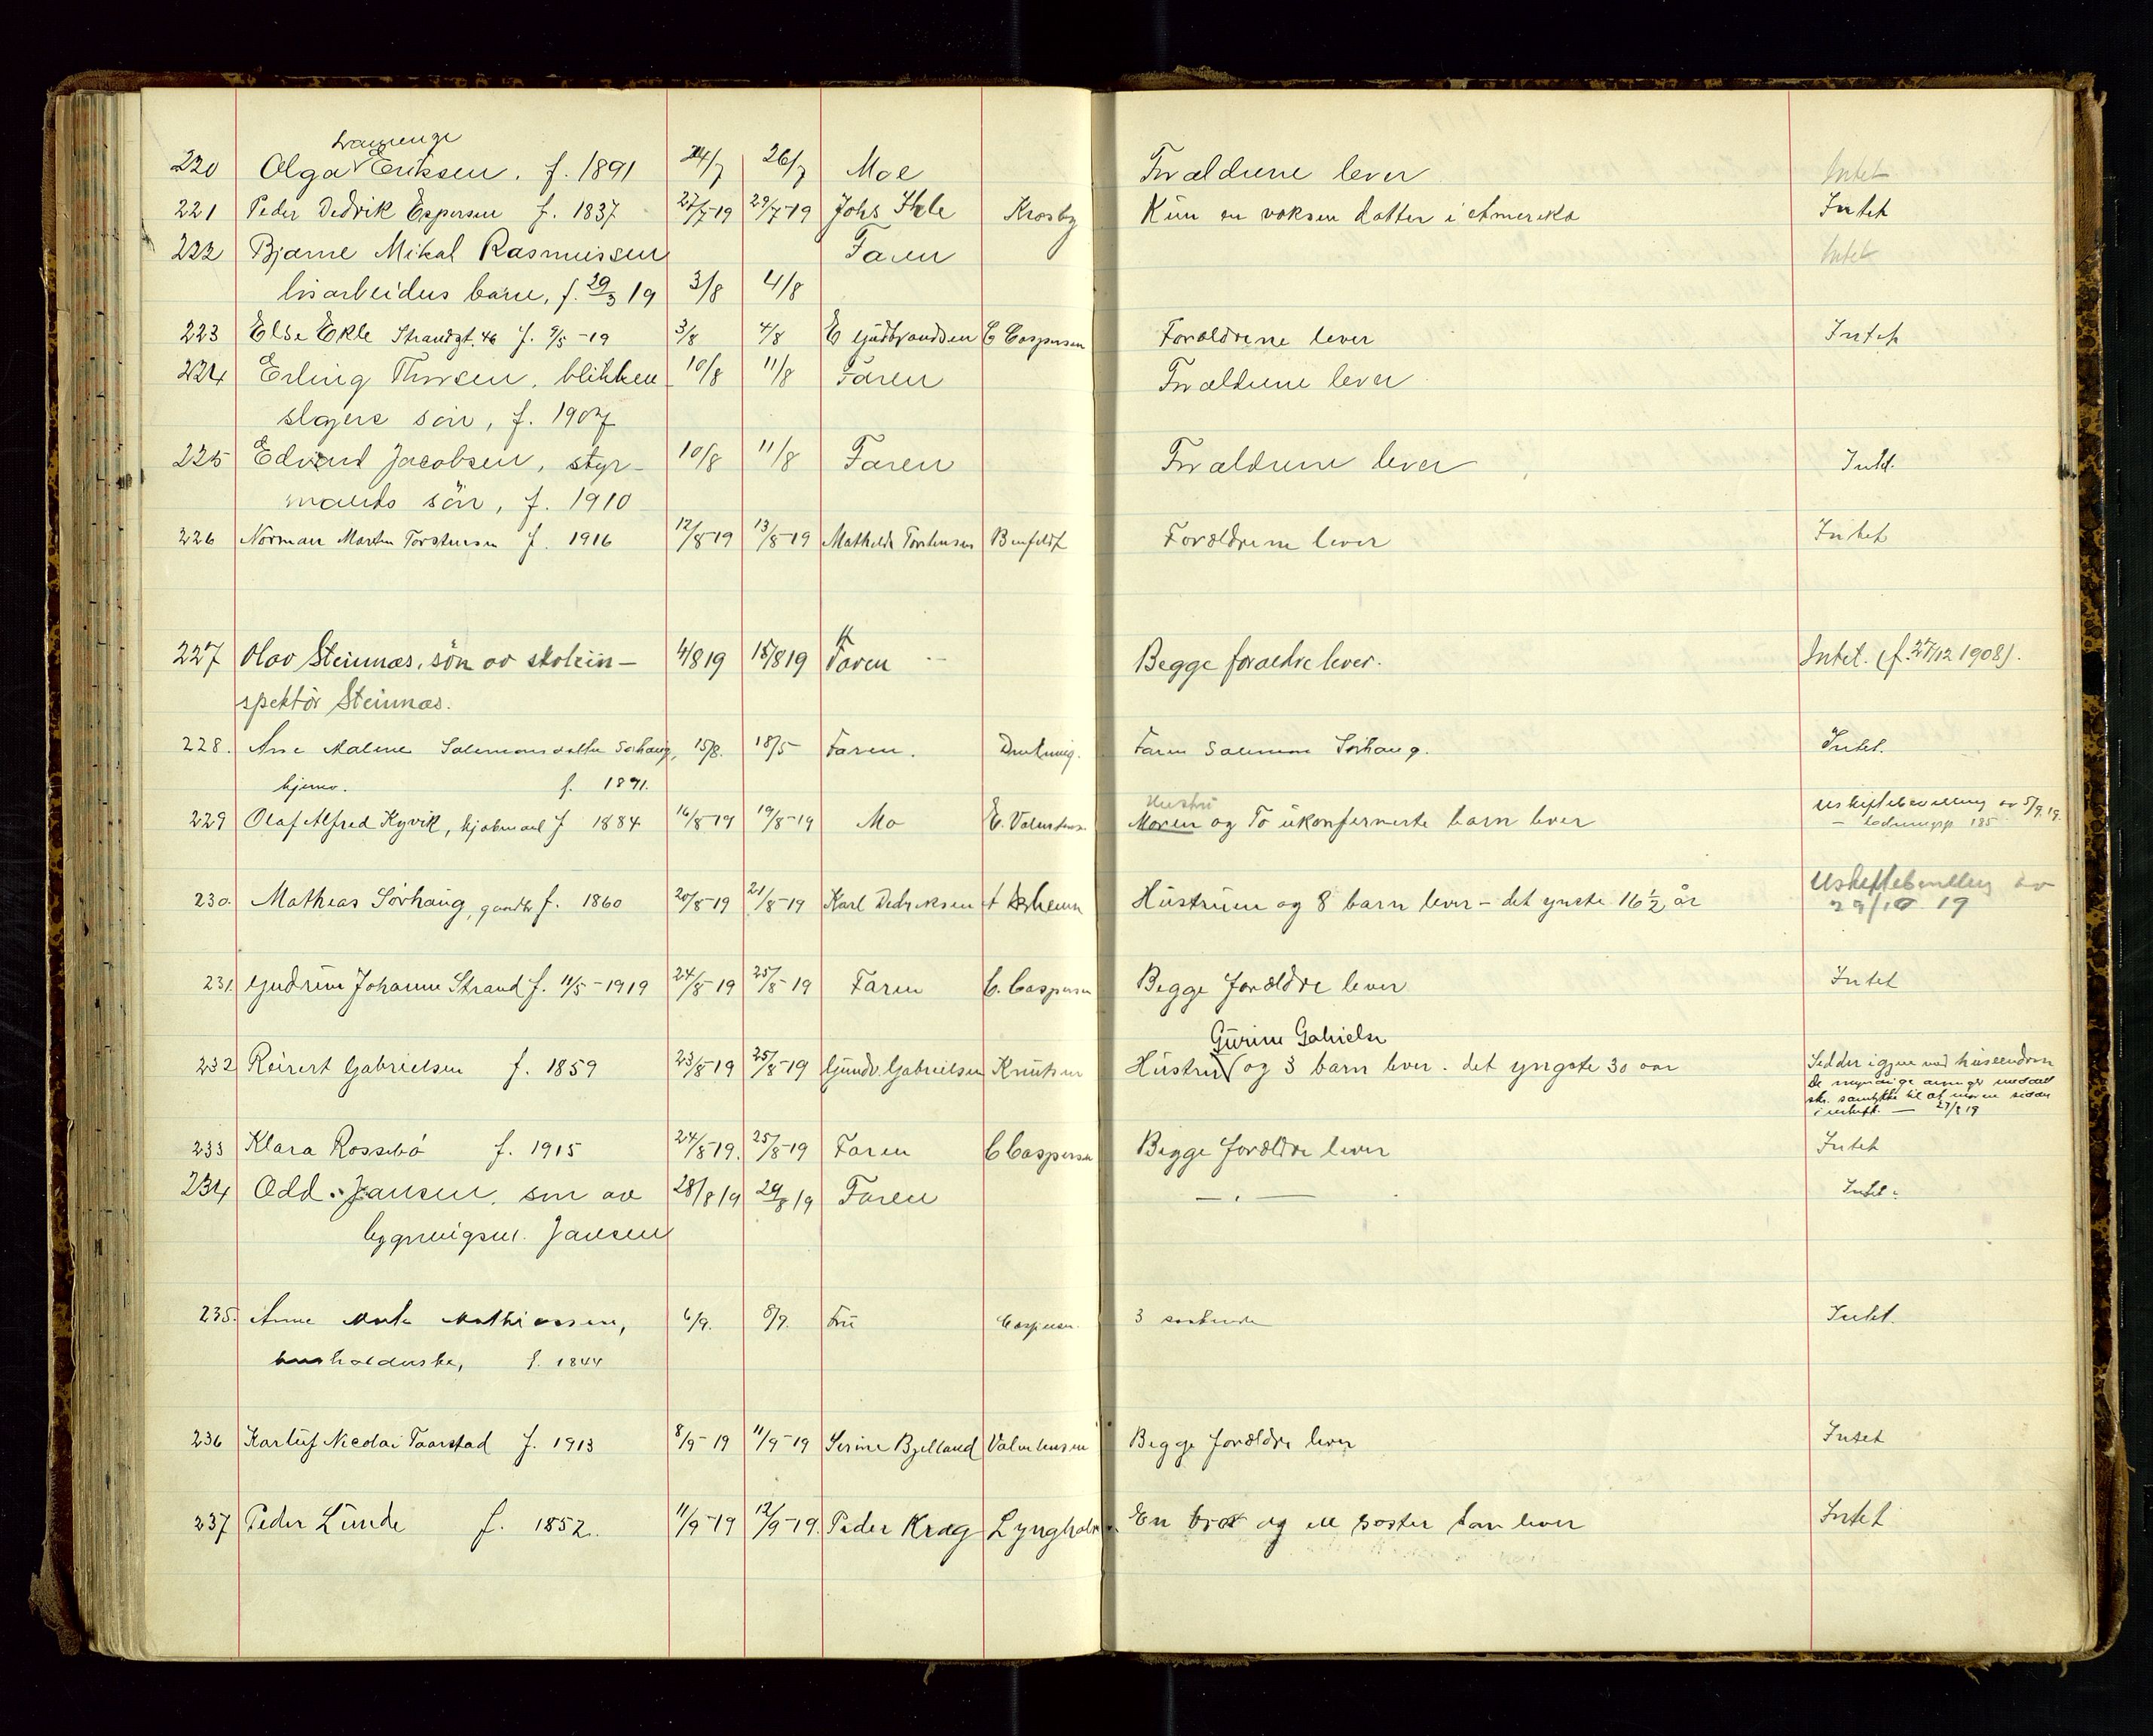 220 Olga Eriksen. f. 1891 24/7 26/7 Moe Forældrene lever Intet
221 Peder Dedrik Espersen f. 1837 27/7-19 29/7-19 Johs Ihle Krosby Kun en voksen datter i Amerika Intet
222 Bjarne Mikal Rasmussen Faren Intet
løsarbeiders barn, f. 29/3 19 3/8 4/8
223 Else Ekle Strandgt. 46 f. 9/5-19 3/8 4/8 E Gudbrandsen C Caspersen Forældrene lever Intet
224 Erling Thorsen, blikken- 10/8 11/8 Faren Forældrene lever
slagers sön, f. 1907
225 Edvard Jacobsen, styr- 10/8 11/8 Faren Forældrene lever Intet.
mands sön, f. 1910
226 Norman Martin Torstensen f. 1916 12/8-19 13/8-19 Mathilde Torstensen Forældrene lever Intet
227 Olav Steinnæs, sön av skolein- 4/8 19 15/8 19 Faren Begge forældre lever. Intet. (f. 27/12 1908).
spektör Steinnæs.
228. Ane Malene Salomonsdatter Sörhaug, 15/8. 18/5 Faren. Faren Salomon Sörhaug. Intet.
f. 1891.
229 Olaf Alfred Kyvik, kjöbmand f 1884 16/8-19 19/8-19 Mo E. Valentinsen Hustru
Moren og To ukonfirmerte barn lever Uskiftebevilling av 5/9.19.
185
230. Mathias Sörhaug, gaardbr f. 1860 20/8-19 21/8-19 Karl Dedriksen Hustruen og 8 barn lever - det ynste 16 1/2 år Uskiftebevilling av
29/10 19
231. Gudrun Johanne Strand f. 11/5-1919 24/8-19 25/8-19 Faren C. Caspersen Begge forældre lever Intet
Gurine Gabrielsen
232 Reinert Gabrielsen f. 1859 23/8-19 25/8-19 Gundv. Gabrielsen Knutsen Hustru og 3 barn lever. det yngste 30 aar Sedder igjen med husendom
De myndige arvinger meddelt
skr. samtykke til at moren sidder
i uskift. — 27/8 19
233 Klara Rossebö f. 1915 24/8-19. 25/8-19 Faren C Caspersen Begge forældre lever Intet
234 Odd Jansen, sön av 28/8 19 29/8 19 Faren — " — Intet.
bygningsm. Jansen
235. Anne Marta Mathiassen, 6/9. 8/9. Fru Caspersen. 3 söskende Intet.
husholderske, f. 1844
236 Karluf Nicolai Taarstad f. 1913 8/9-19 11/9-19 Serine Bjelland Valentinsen Begge forældre lever Intet
237 Peder Lunde f. 1852. 11/9-19 12/9-19. Peder Krag Lyngholm En bror og en söster barn lever Intet